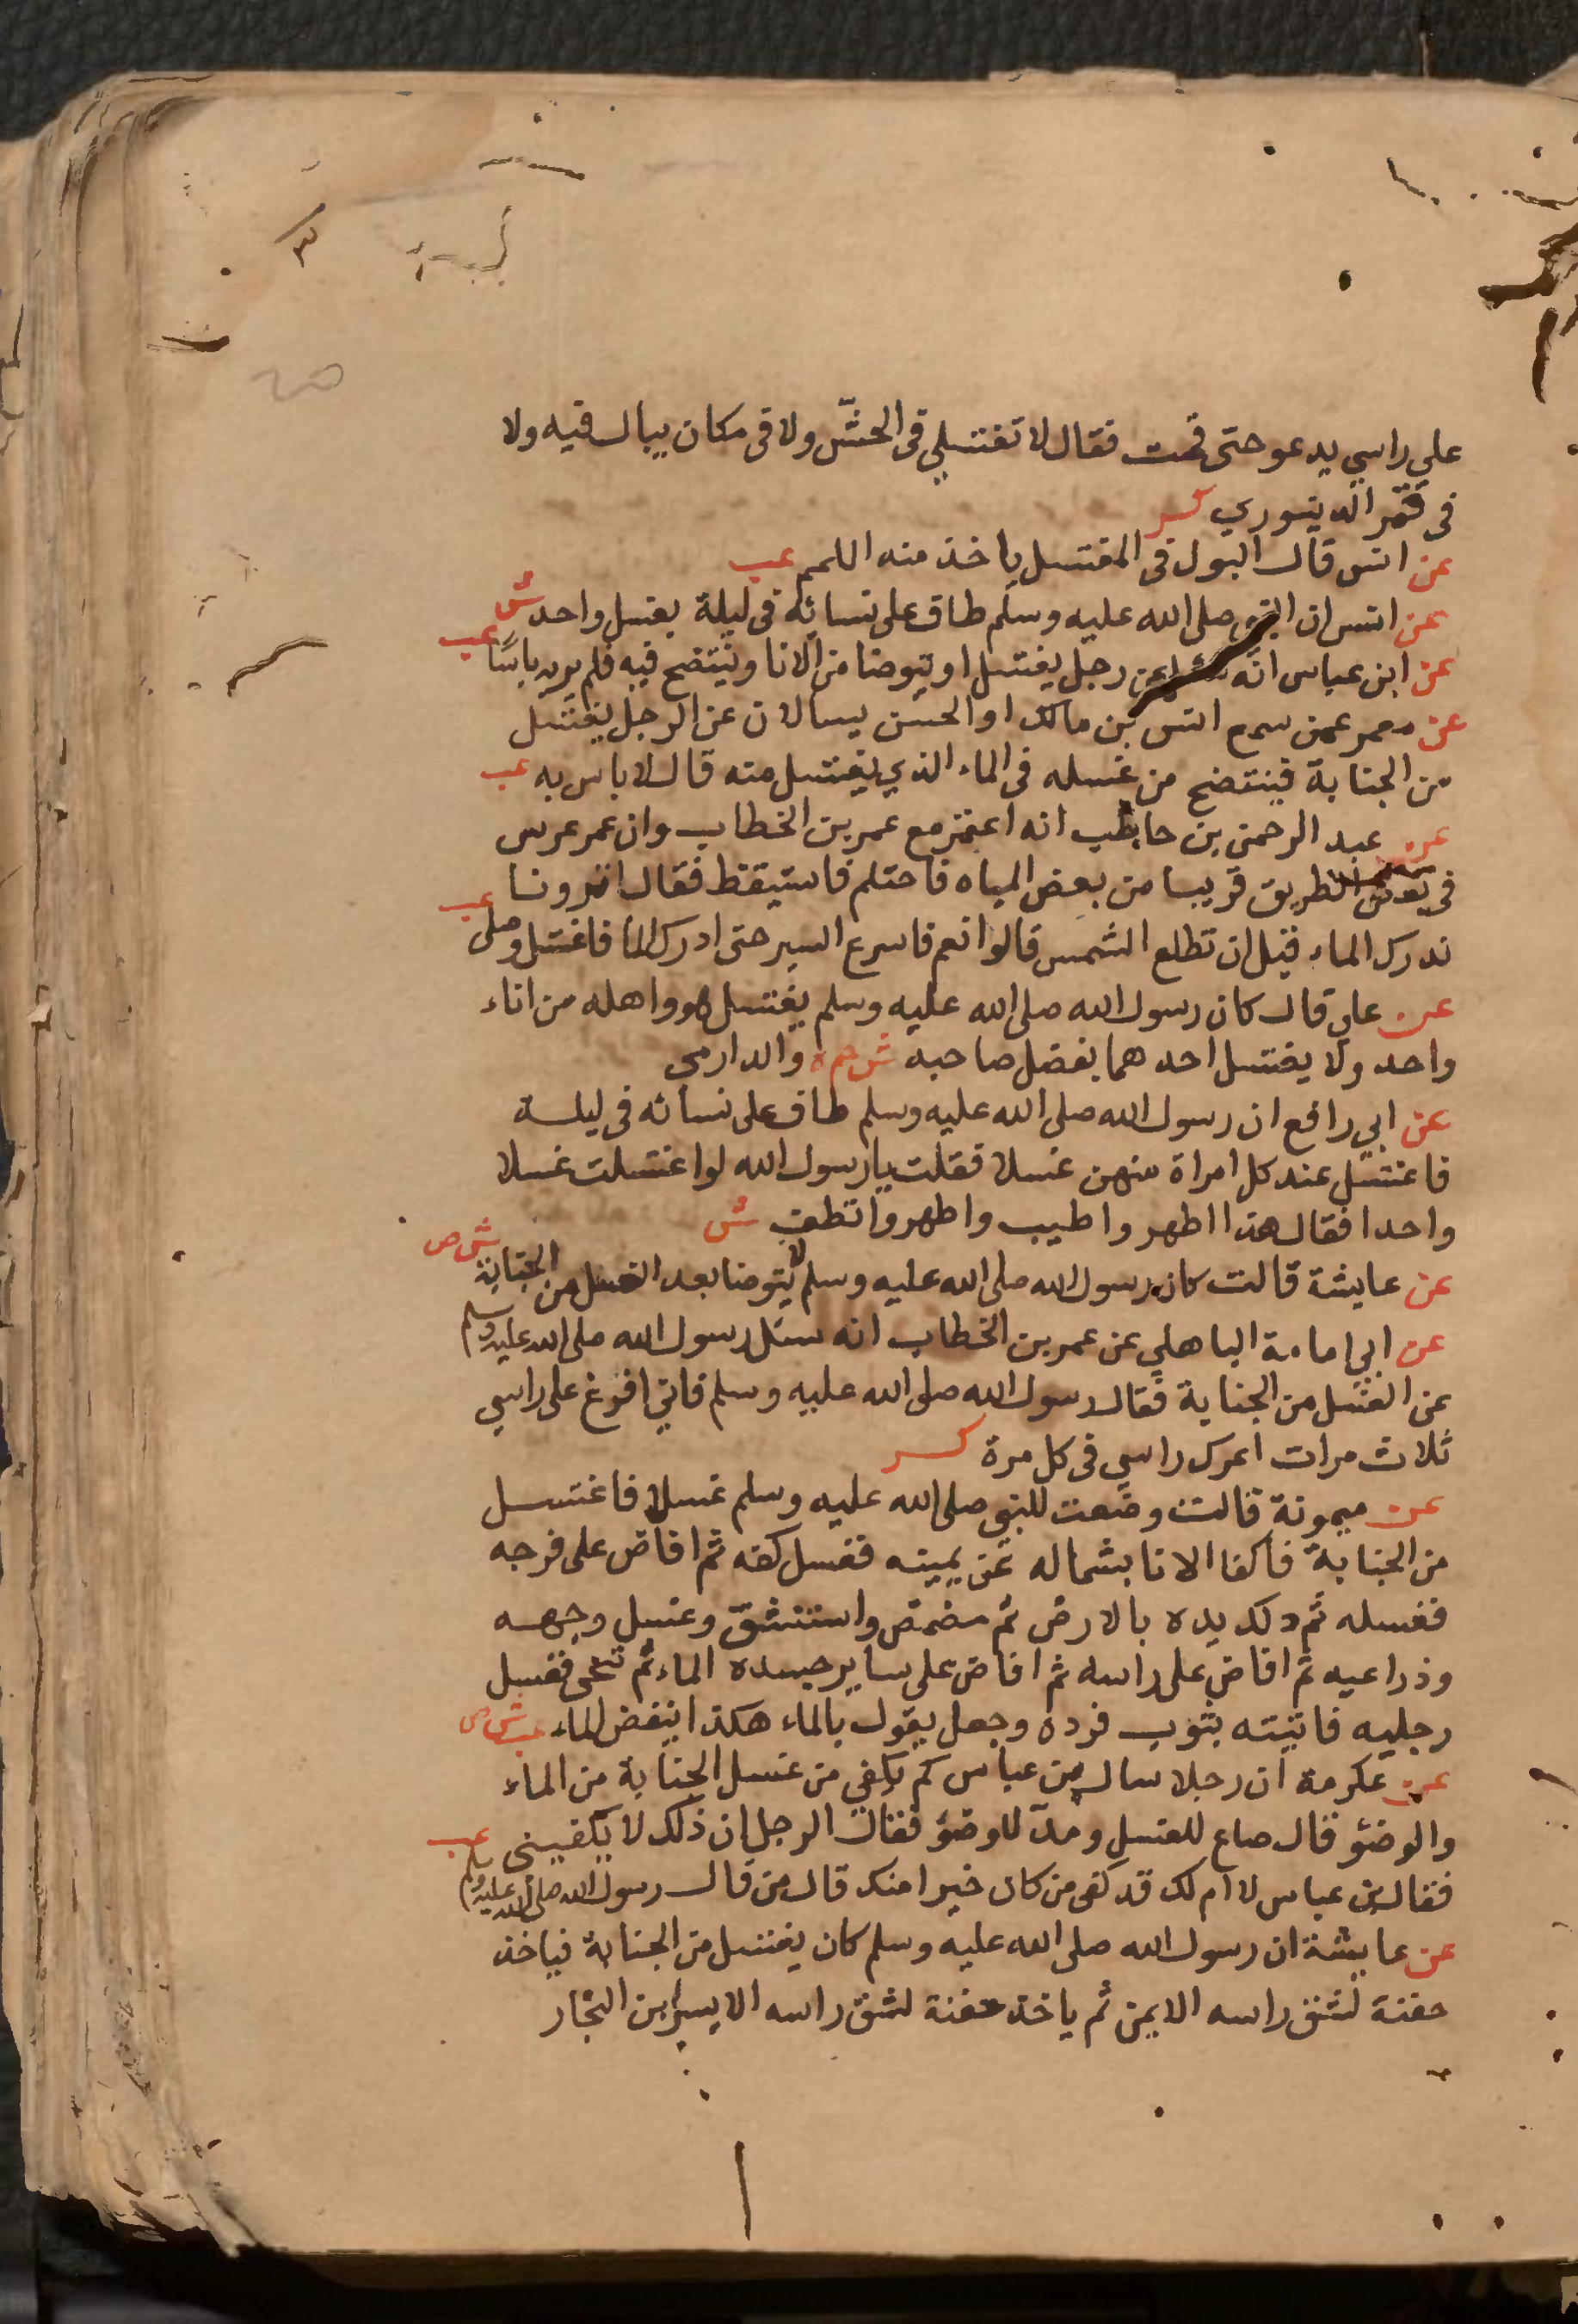 علي راسي يدعو حتى قمت فقال لا تغتسلي في الحشّ ولا في مكان يبال فيه ولا
في قمر الدينوري كر
عن انس قال البول في المغتسل ياخذ منه اللمم عب
عن انس ان النبي صلى الله عليه وسلم طاف على نسائه في ليلة بغسل واحد ش
عن ابن عباس انه سئل عن رجل يغتسل او يتوضا من الانا وينتضح فيه فلم ير به باسًا عب
عن معمر عمن سمع انس بن مالك او الحسن يسالان عن الرجل يغتسل
من الجنابة فينتضح من غسله في الماء الذي يغتسل منه قال لا باس به عب
عن عبد الرحمن بن حاطب انه اعتمر مع عمر بن الخطاب وان عمر عرس
في بعض الطريق قريبا من بعض المياه فاحتلم فاستيقظ فقال اترونا
ندرك الماء قبل ان تطلع الشمس قالوا نعم فاسرع السير حتى ادرك الما فاغتسل وصلى عب
عن علي قال كان رسول الله صلى الله عليه وسلم يغتسل هو واهله من اناء
واحد ولا يغتسل احدهما بفضل صاحبه ش حم ه والدارمي
عن ابي رافع ان رسول الله صلى الله عليه وسلم طاف على نسائه في ليلة
فاغتسل عند كل امراة منهن غسلا فقلت يا رسول الله لو اغتسلت غسلا
واحدا فقال هذا اطهر واطيب واطهر وانظف ش
عن عايشة قالت كان رسول الله صلى الله عليه وسلم لا يتوضا بعد الغسل من الجنابة ش ص
عن ابي امامة الباهلي عن عمر بن الخطاب انه سئل رسول الله صلى الله عليه وسلم
عن الغسل من الجنابة فقال رسول الله صلى الله عليه وسلم فاني افرغ على راسي
ثلاث مرات اعرك راسي في كل مرة كر
عن ميمونة قالت وضعت للنبي صلى الله عليه وسلم غسلا فاغتسل
من الجنابة فاكفا الانا بشماله عن يمينه فغسل كفه ثم افاض على فرجه
فغسله ثم دلك يده بالارض ثم مضمض واستنشق وغسل وجهه
وذراعيه ثم افاض على راسه ثم افاض على ساير جسده الماء ثم تنحى فغسل
رجليه فاتيته بثوب فرده وجعل يقول بالماء هكذا ينفض الماء عب ش ص
عن عكرمة ان رجلا سال بن عباس كم يكفي من غسل الجنابة من الماء
والوضؤ قال صاع للغسل ومد للوضؤ فقال الرجل ان ذلك لا يكفيني عب
فقال بن عباس لا ام لك قد كفى من كان خيرا منك قال من قال رسول الله صلى الله عليه وسلم
عن عايشة ان رسول الله صلى الله عليه وسلم كان يغتسل من الجنابة فياخذ
حفنة لشق راسه الايمن ثم ياخذ حفنة لشق راسه الايسر ابن النجار